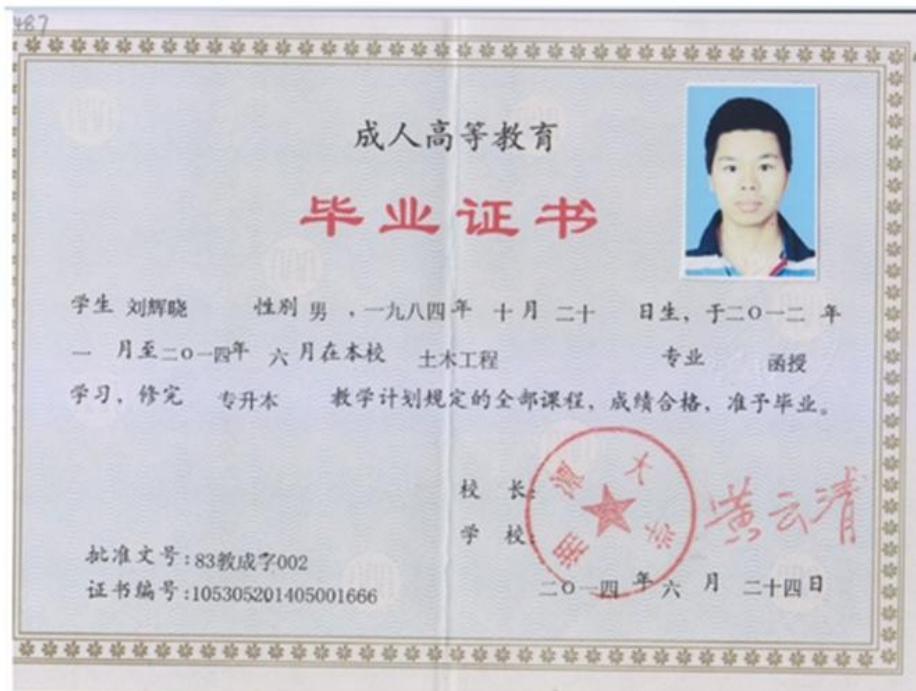 487
成人高等教育
毕业证书
学生 刘辉晓 性别 男 ,一九八四年 十月 二十 日生, 于二〇一二 年
一 月至二〇一四年 六月在本校 土木工程 专业 函授
学习, 修完 专升本 教学计划规定的全部课程, 成绩合格, 准予毕业。
校 长:
黄云清
学 校:
湘潭大学
批准文号:83教成字002
证书编号:105305201405001666
二〇一四 年 六 月 二十四日